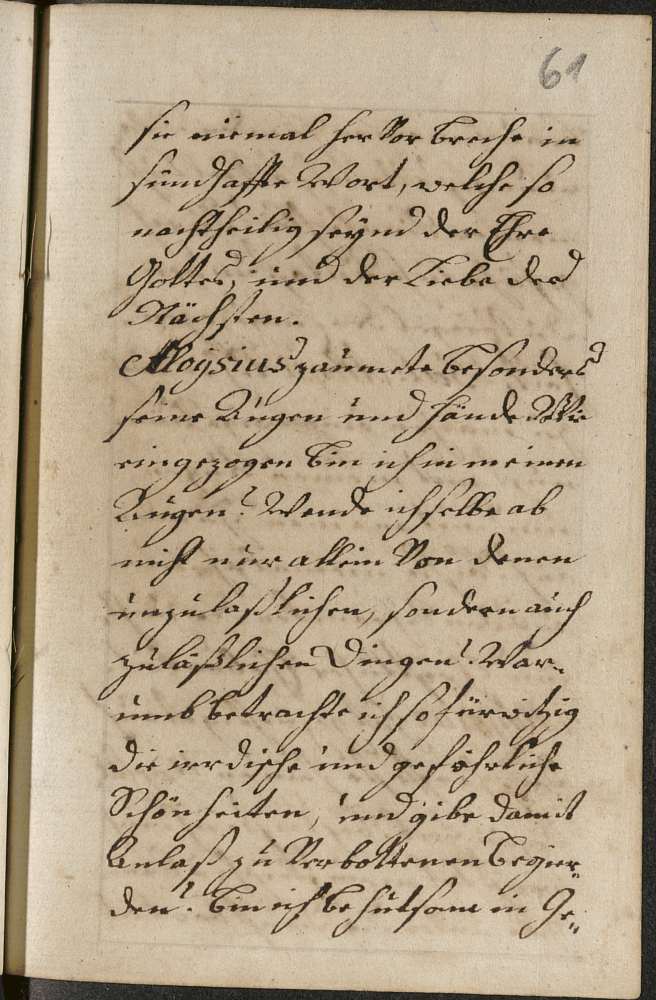 61
sie niemal hervor breche in
sündhaffte Wort, welche so
nachtheilig seynd der Ehre
Gottes, und der Liebe des
Nächsten.
Aloysius zaumete besonders
seine Augen und Hände. Wie
eingezogen bin ich in meinen
Augen? Wende ich selbe ab
nicht nur allein von denen
unzulaßlichen, sondern auch
zuläßlichen Dingen? War-
umb betrachte ich so fürwitzig
die irrdische und gefährliche
Schönheiten, und gibe damit
Anlaß zu verbottenen Begier„
den? Bin ich behutsam in Ge„